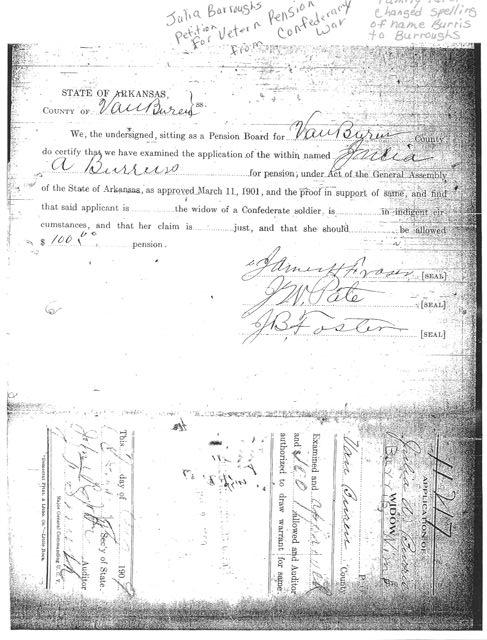 Julia Burroughs
Petition
For Vetern Pension
from Confederacy
War
changed spelling
of name Burris
to Burroughs
STATE OF ARKANSAS,
COUNTY OF Van Buren ss.
We, the undersigned, sitting as a Pension Board for Van Buren County
do certify that we have examined the application of the within named Julia
A Burruss for pension, under Act of the General Assembly
of the State of Arkansas, as approved March 11, 1901, and the proof in support of same, and find
that said applicant is the widow of a Confederate soldier, is in indigent cir-
cumstances, and that her claim is just, and that she should be allowed
$ 100.00 pension.
James H Fraser [SEAL]
J W. Pate [SEAL]
J B Foster [SEAL]
11217
APPLICATION OF
Julia A
WIDOW
Van Buren County
Examined and
and $100 allowed and Auditor
authorized to draw warrant for same.
This day of 190
Secy of State.
Auditor
Major General Commanding U. C. V.